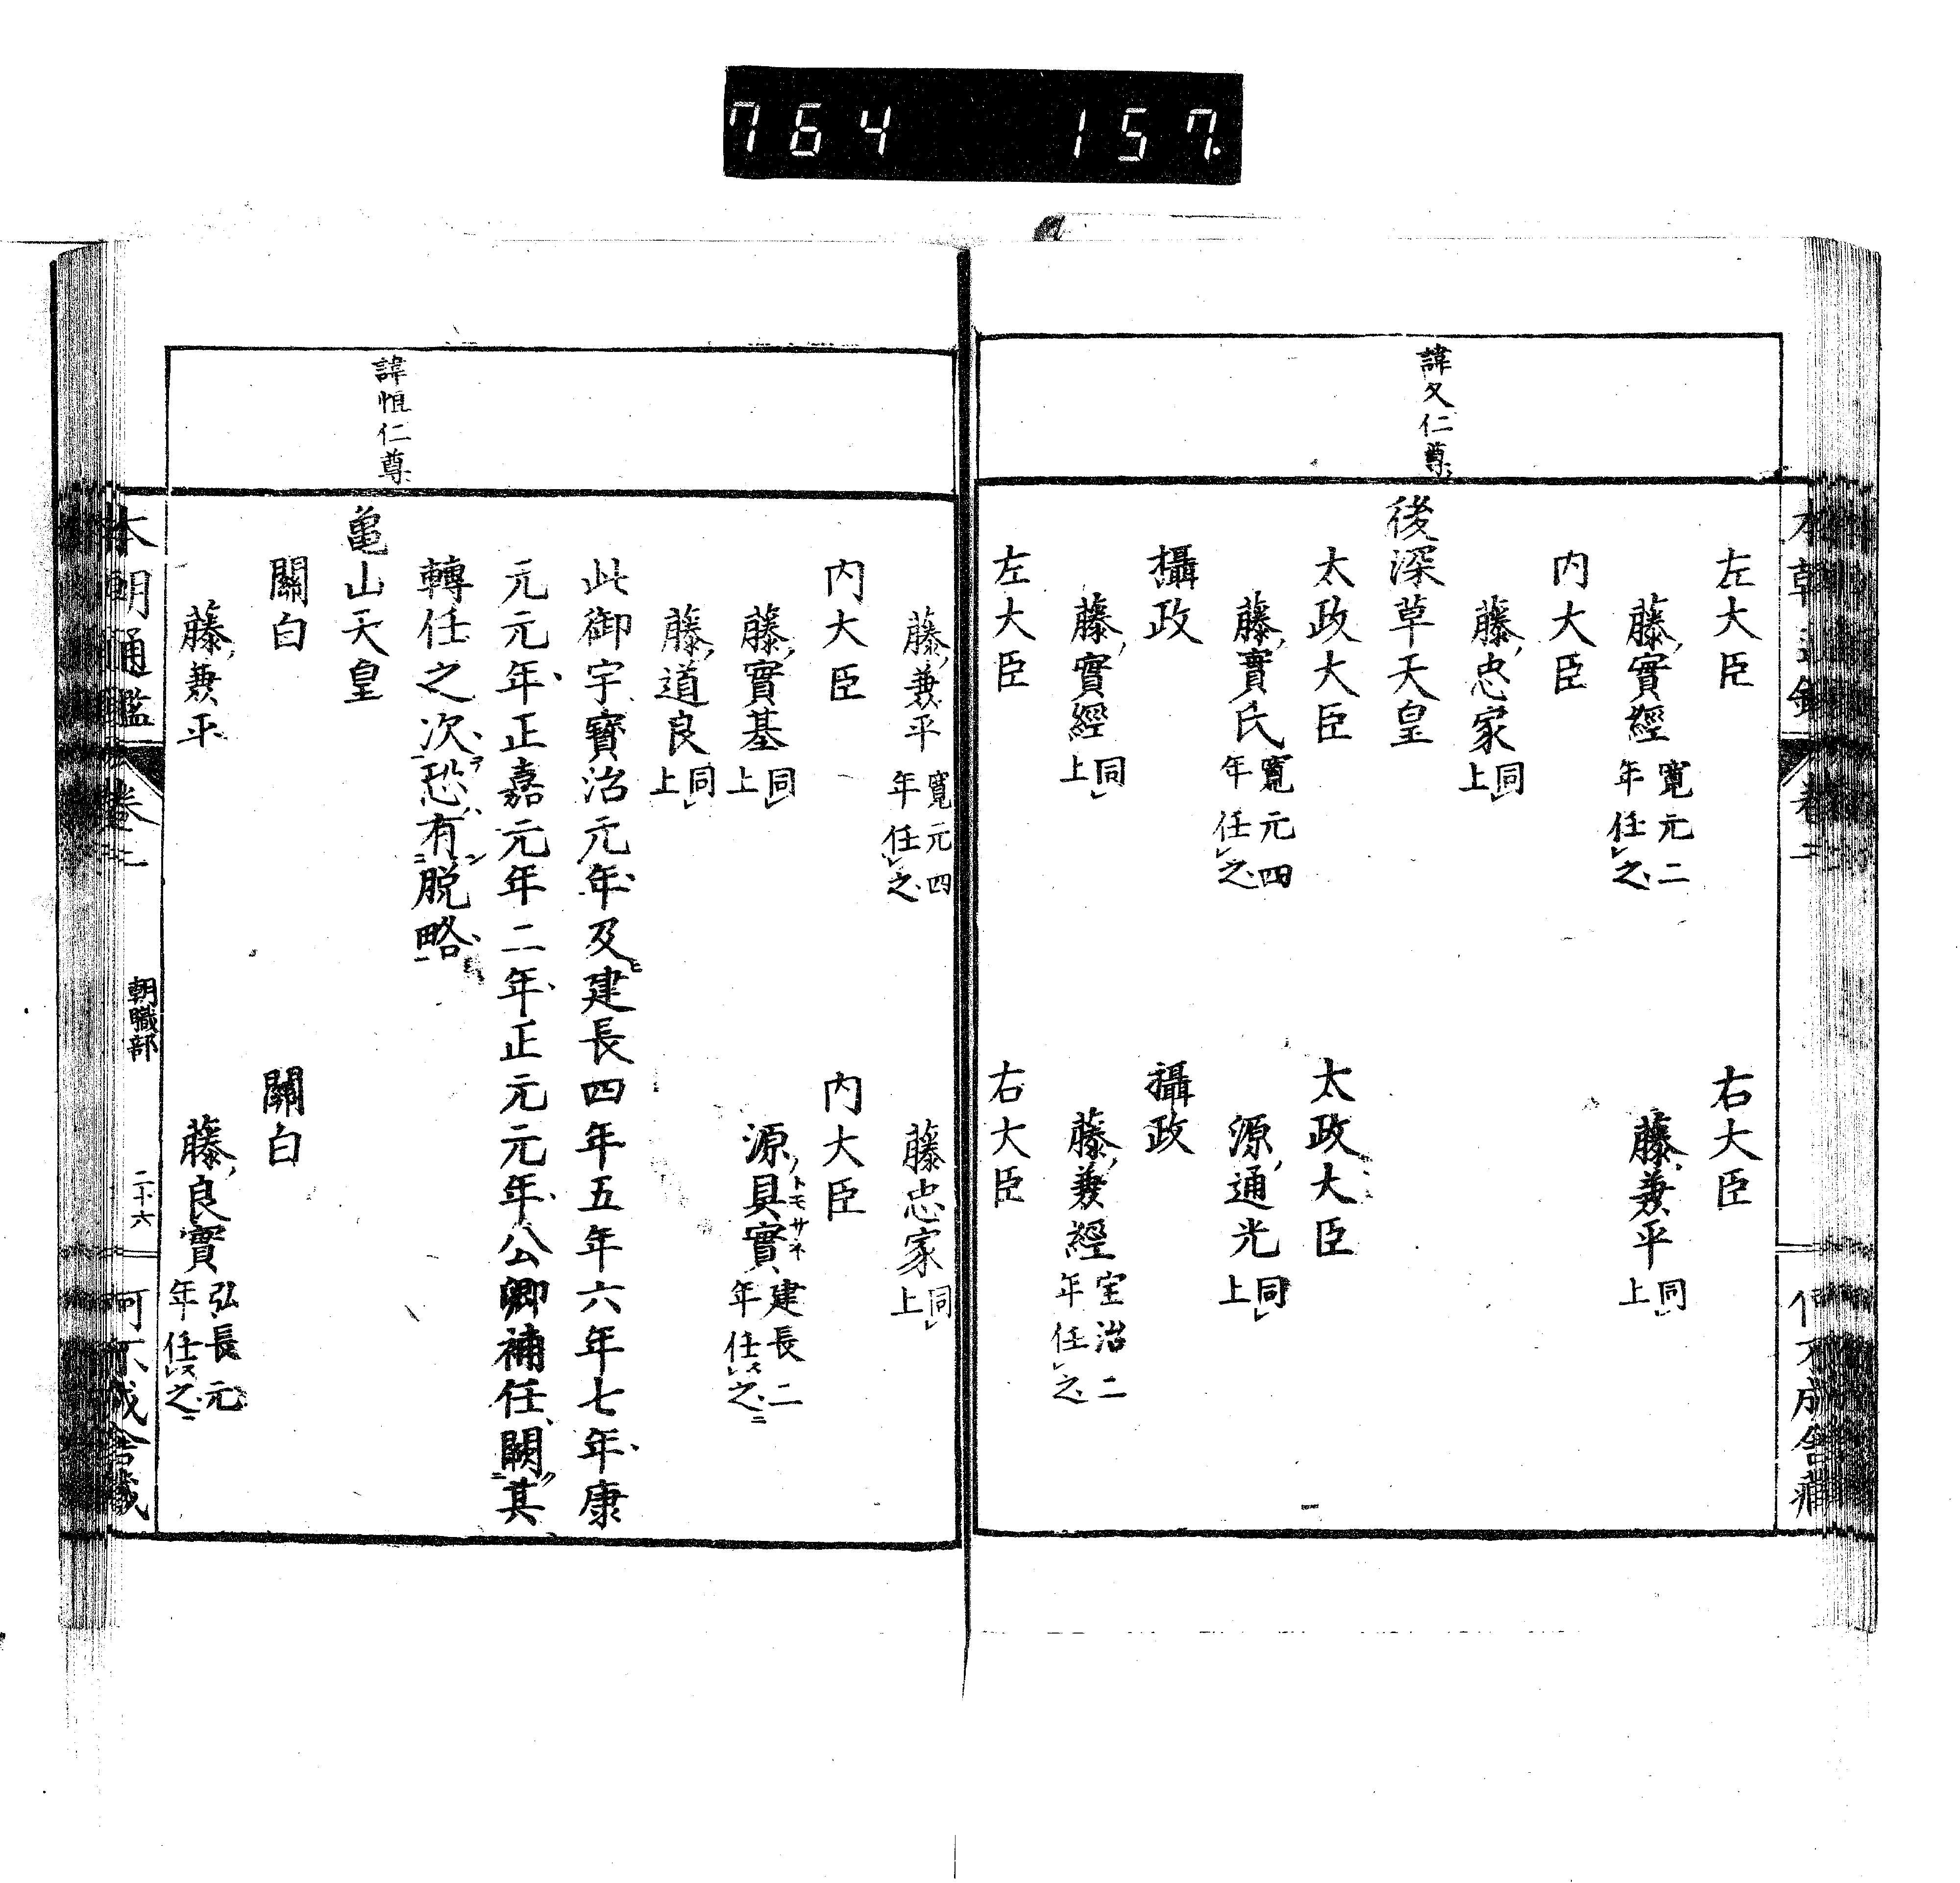 764 157.
左大臣
右大臣
藤實經 寛元二年任之
藤兼平 同上
内大臣
藤忠家 同上
諱久仁尊
後深草天皇
太政大臣
太政大臣
藤實氏 寛元四年任之
源通光 同上
攝政
攝政
藤實經 同上
藤兼經 宝治二年任之
左大臣
右大臣
藤兼平 寛元四年任之
藤忠家 同上
内大臣
内大臣
藤實基 同上
源具實 トモサネ 建長二年任之
藤道良 同上
此御宇寶治元年及建長四年五年六年七年康
元元年正嘉元年二年正元元年公卿補任闕其
轉任之次恐有脱略
諱恒仁尊
亀山天皇
關白
關白
藤兼平
藤良實 弘長元年任之
本朝通鑑 卷
朝職部
二十六